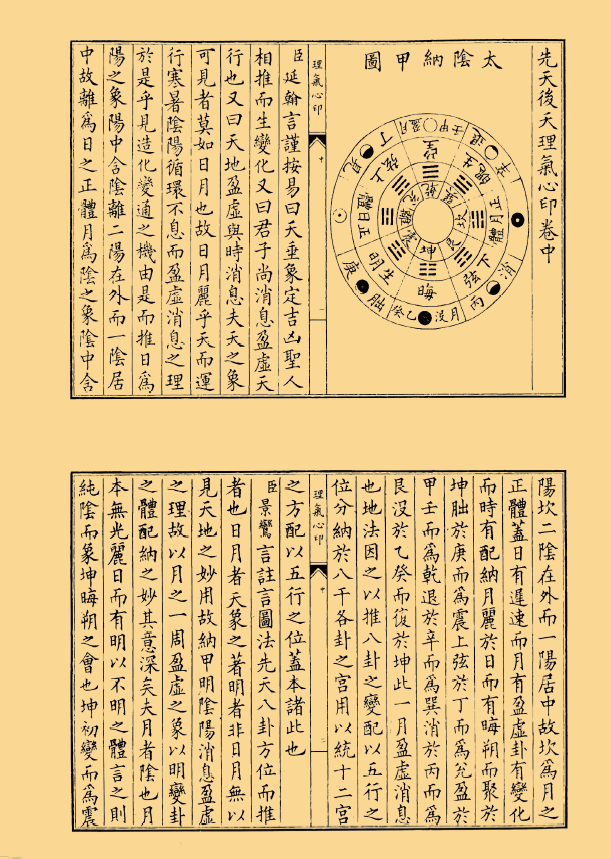 先天後天理氣心印卷中
太陰納甲圖
乾
兌
離
震
坤
艮
坎
巽
望
上弦
正日體
生明
晦
下弦
正月體
生魄
甲壬
盈月
丁
見
庚
朏
乙癸
月沒
丙
消
辛
退
理氣心印
中
一
臣延翰言謹按易曰天垂象定吉凶聖人
相推而生變化又曰君子尚消息盈虛天
行也又曰天地盈虛與時消息夫天之象
可見者莫如日月也故日月麗乎天而運
行寒暑陰陽循環不息而盈虛消息之理
於是乎見造化變通之機由是而推日爲
陽之象陽中含陰離二陽在外而一陰居
中故離爲日之正體月爲陰之象陰中含
陽坎二陰在外而一陽居中故坎爲月之
正體蓋日有遲速而月有盈虛卦有變化
而時有配納月麗於日而有晦朔而聚於
坤朏於庚而爲震上弦於丁而爲兌盈於
甲壬而爲乾退於辛而爲巽消於丙而爲
艮沒於乙癸而復於坤此一月盈虛消息
也地法因之以推八卦之變配以五行之
位分納於八干各卦之宮用以統十二宮
理氣心印
中
二
之方配以五行之位蓋本諸此也
臣景鸞言註言圖法先天八卦方位而推
者也日月者天象之著明者非日月無以
見天地之妙用故納甲明陰陽消息盈虛
之理故以月之一周盈虛之象以明變卦
之體配納之妙其意深矣夫月者陰也月
本無光麗日而有明以不明之體言之則
純陰而象坤晦朔之會也坤初變而爲震